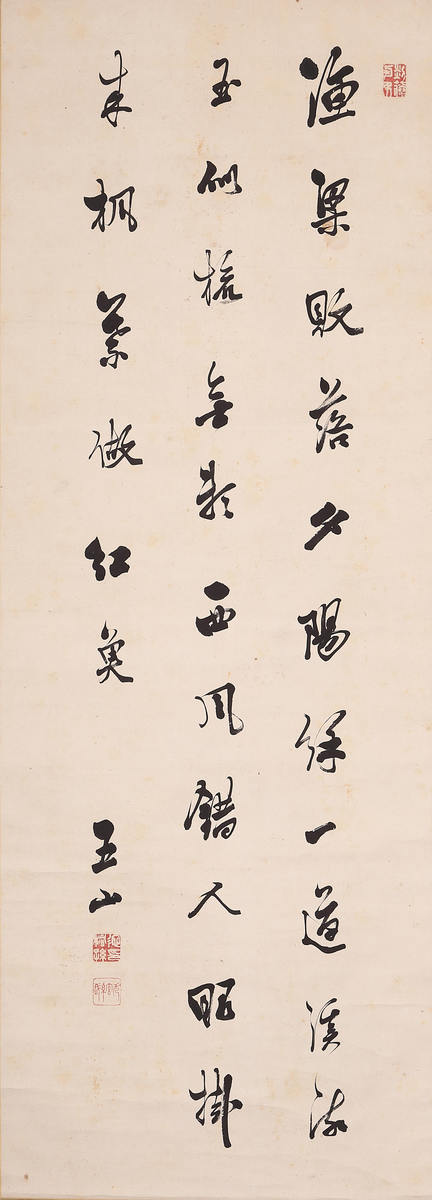 漁梁敗落夕陽餘一道溪流
玉似梳無頼西風錯人眼掛
来楓葉做紅魚
五山